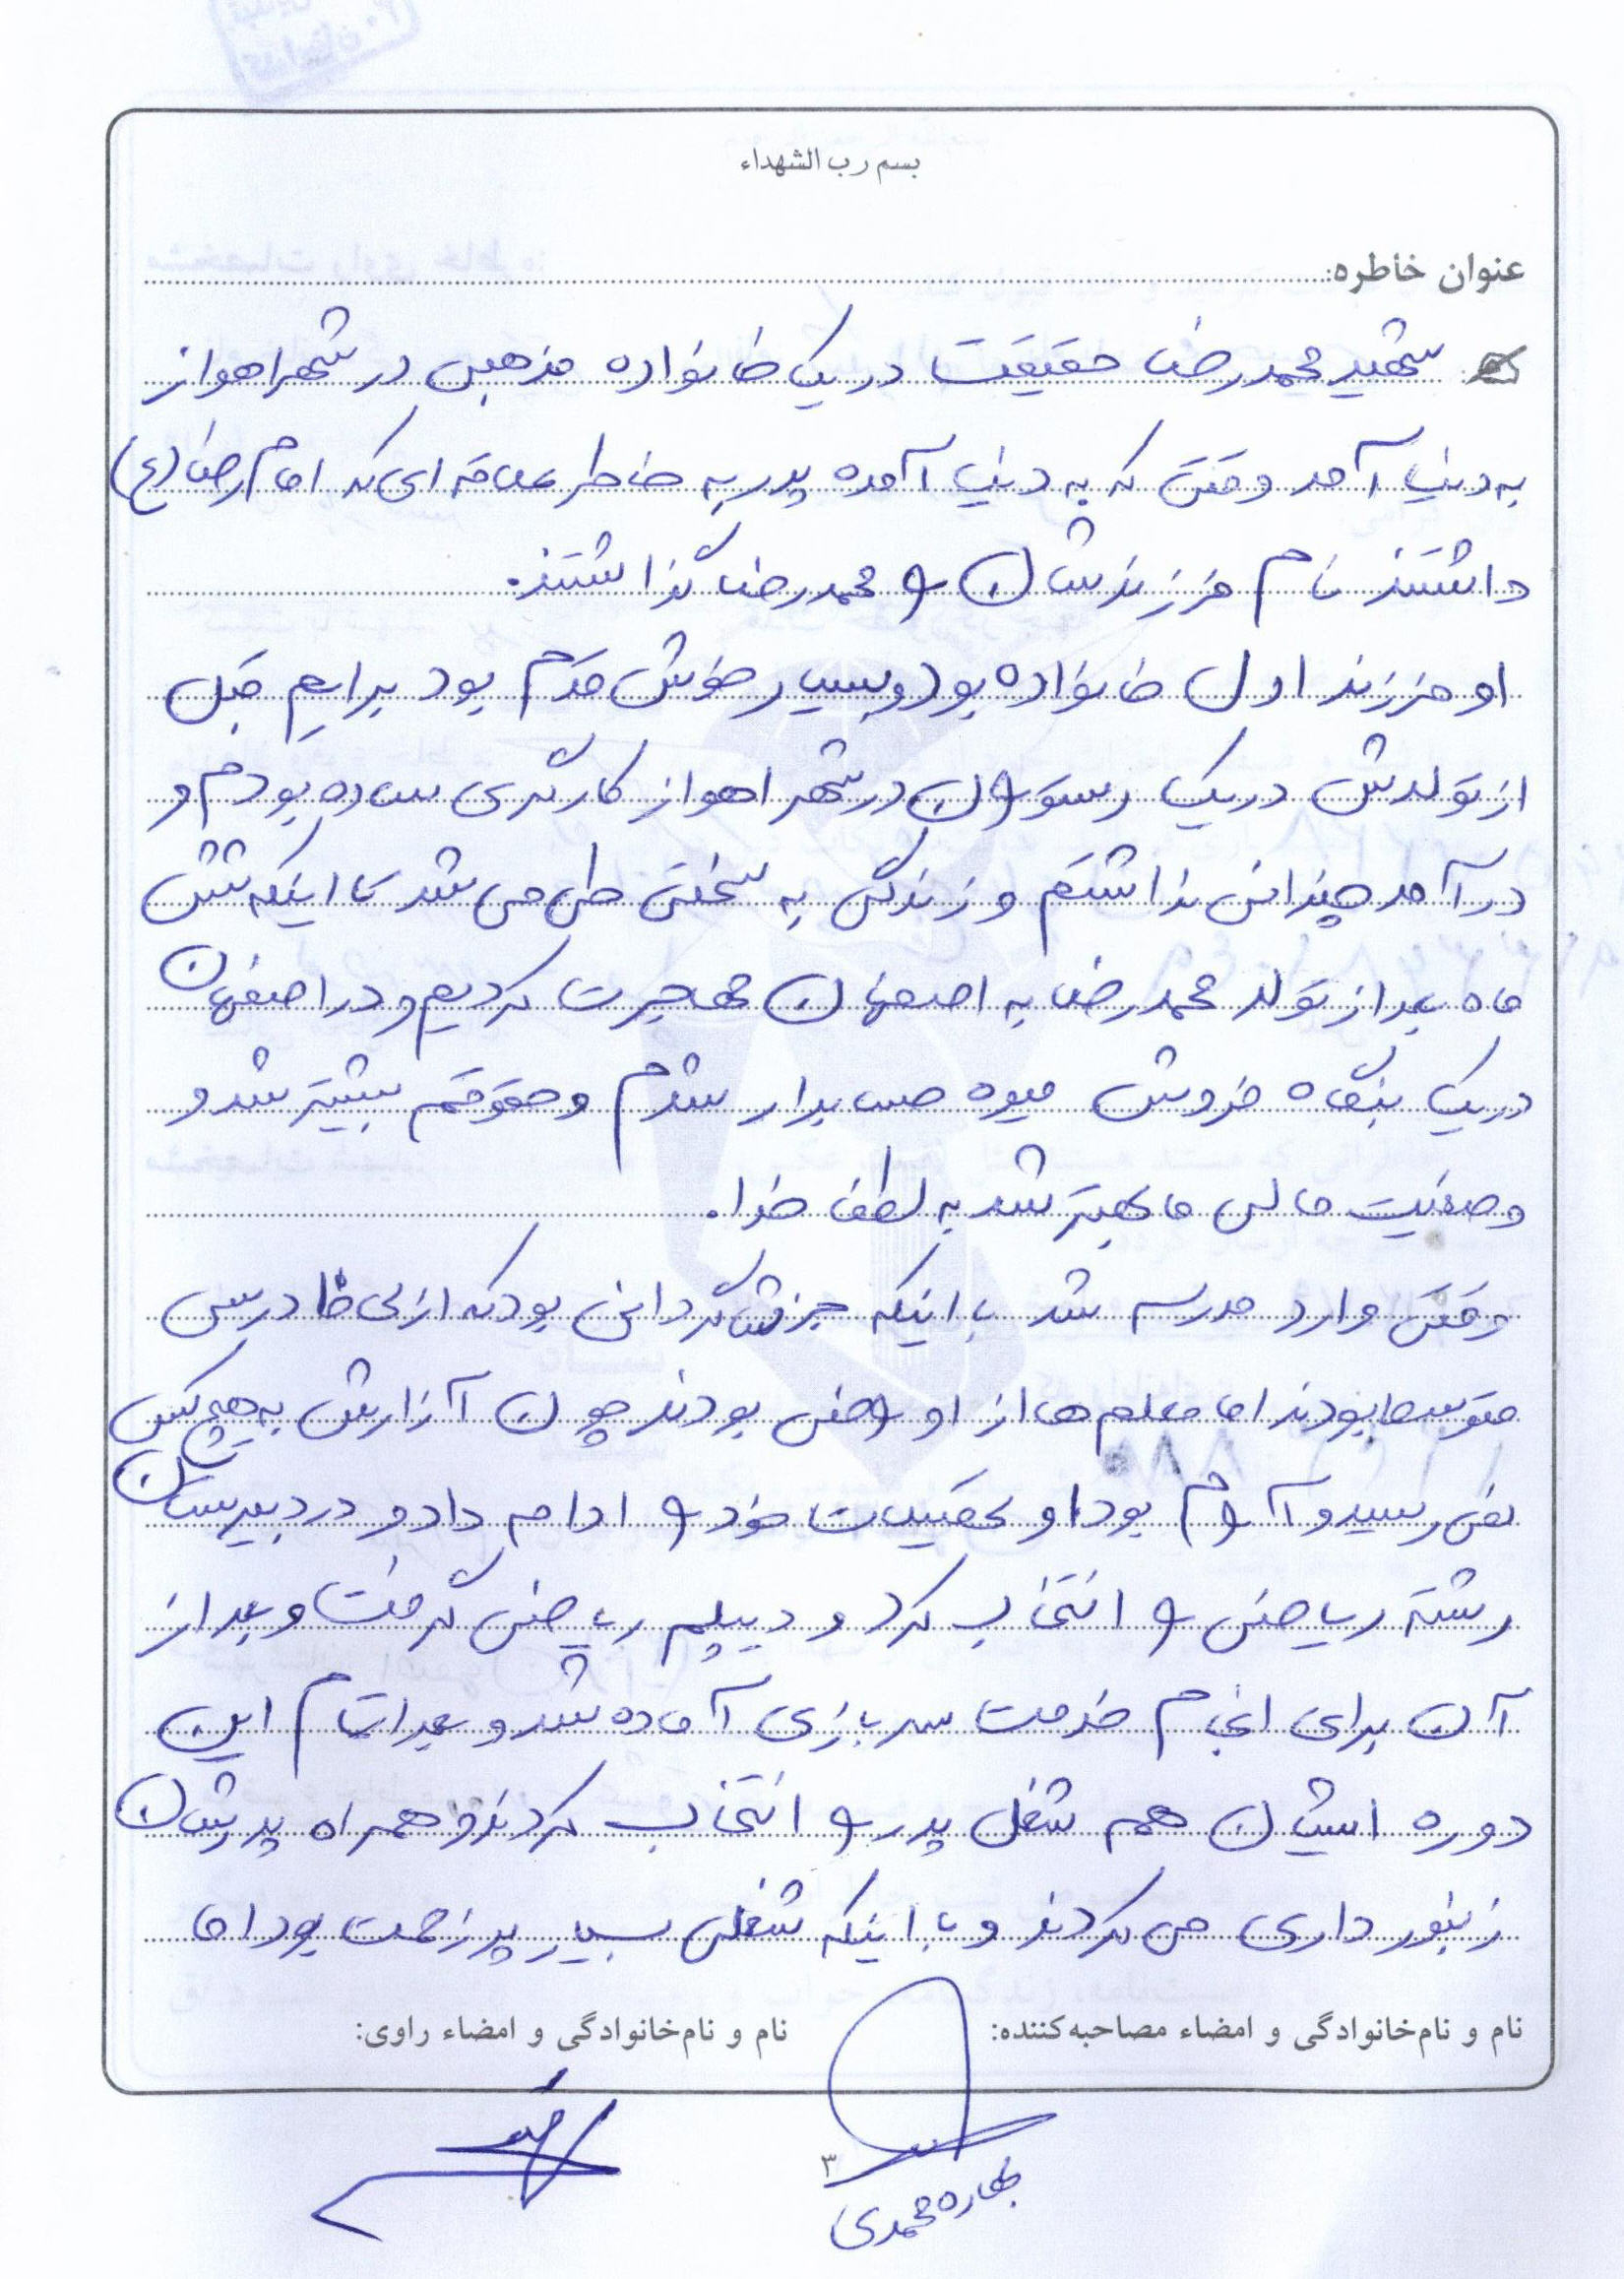 بسم رب الشهداء
عنوان خاطره:
شهید محمدرضا حقیقت در یک خانواده مذهبی در شهر اهواز
به دنیا آمد وقتی که به دنیا آمده پدر به خاطر علاقه ای که امام رضا (ع)
داشتند نام فرزندشان را محمدرضا گذاشتند.
او فرزند اول خانواده بود و بسیار خوش قدم بود برایم قبل
از تولدش در یک رستوران در شهر اهواز کارگری ساده بودم و
درآمد چندانی نداشتم و زندگی به سختی طی می شد تا اینکه شش
ماه بعد از تولد محمدرضا به اصفهان مهاجرت کردیم و در اصفهان
در یک بنگاه فروش میوه حسابدار شدم و حقوقم بیشتر شد و
وضعیت مالی ما بهتر شد به لطف خدا.
وقتی وارد مدرسه شد با اینکه جز شاگردانی بود که از لحاظ درسی
متوسط بودند اما معلم ها از او راضی بودند چون آزارش به هیچ کس
نمی رسید و آرام بود او تحصیلات خود را ادامه داد و در دبیرستان
رشته ریاضی را انتخاب کرد و دیپلم ریاضی گرفت و بعد از
آن برای انجام خدمت سربازی آماده شد و بعد اتمام این
دوره ایشان هم شغل پدر را انتخاب کردند و همراه پدرشان
زنبور داری می کردند و با اینکه شغلی بسیار پر زحمت بود اما
نام و نام‌خانوادگی و امضاء مصاحبه‌کننده:
نام و نام‌خانوادگی و امضاء راوی:
۳
بهاره محمدی